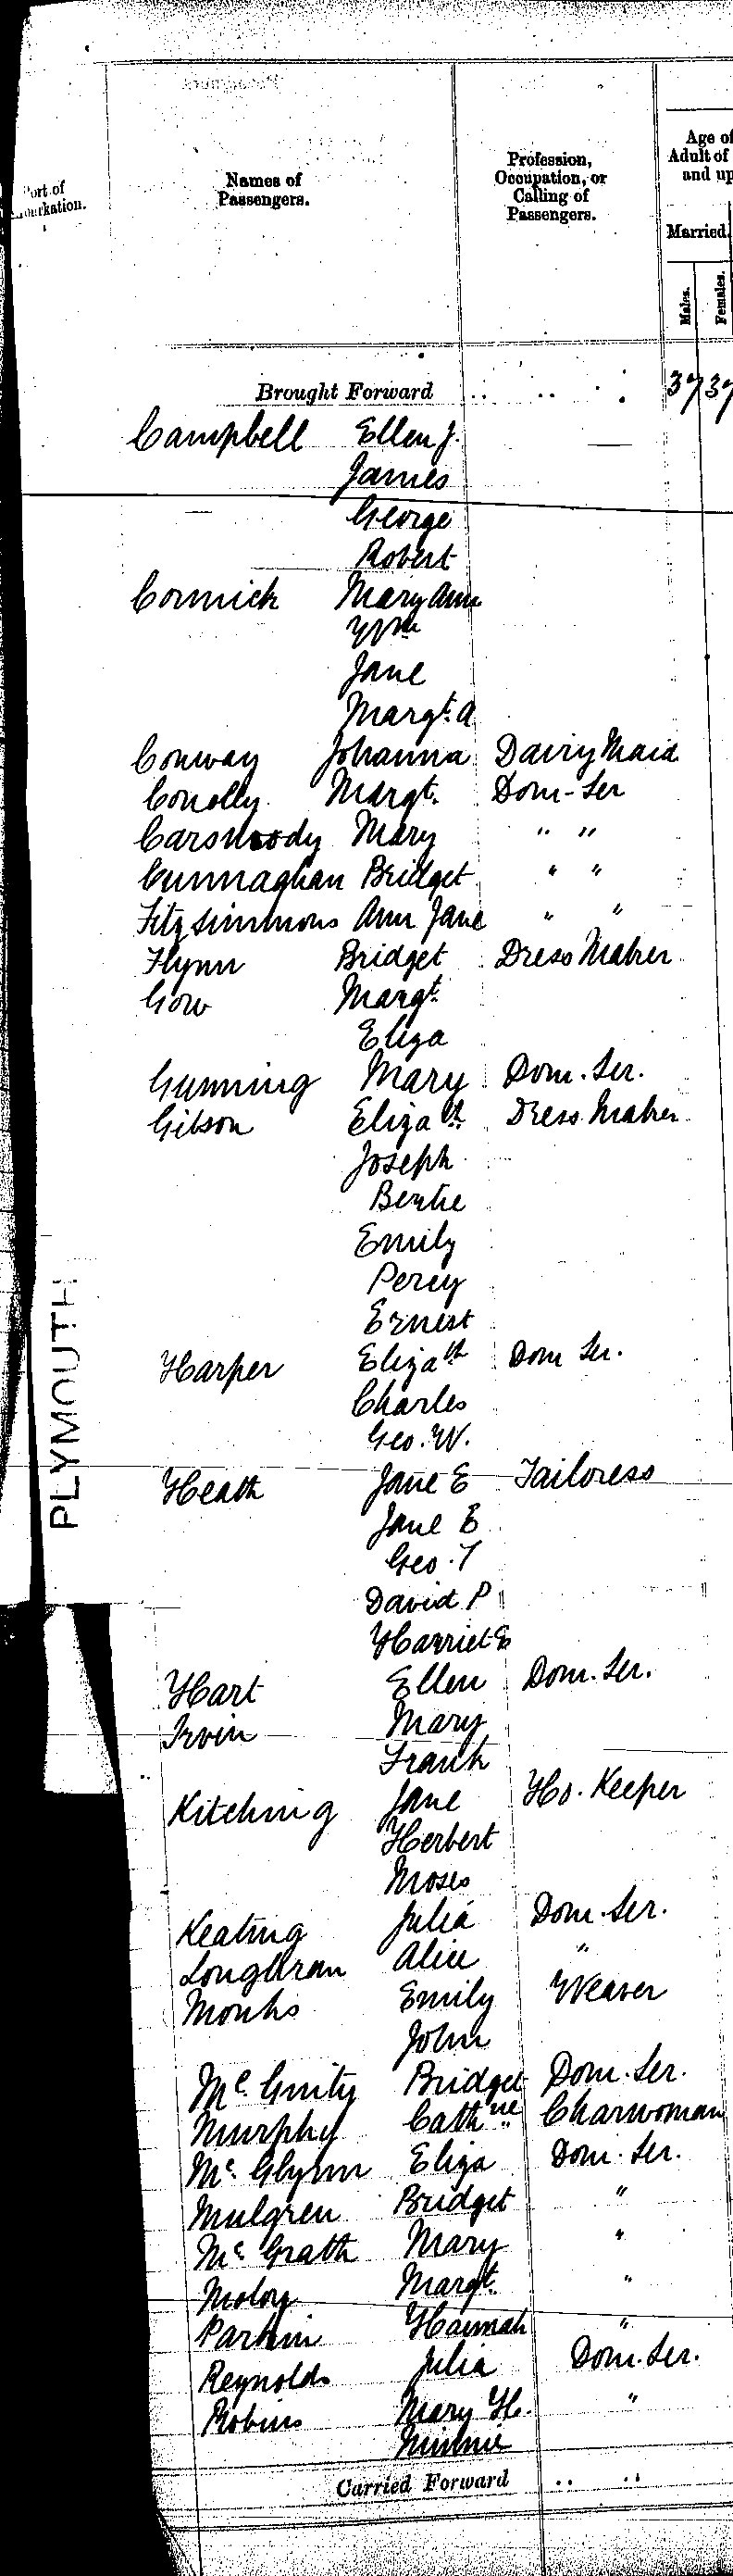 Port of
Embarkation.
Names of
Passengers.
Profession,
Occupation, or
Calling of
Passengers.
Age of
Adult of
and up
Married.
Males.
Females.
Brought Forward 37 37
Campbell Ellen J.
James
George
Robert
Cormick Mary Ann
Wm
Jane
Margt. A
Conway Johanna Dairy Maid
Conolly. Margt. Dom-Ser
Carswoody Mary " "
Cunnaghan Bridget " "
Fitzsimmons Ann Jane " "
Flynn Bridget Dress Maker
Gow Margt.
Eliza
Gunning Mary Dom. Ser.
Gibson Elizath. Dress Maker
Joseph
Bertie
Emily
Percy
Ernest
Harper Elizath Dom Ser.
Charles
Geo. W.
Heath Jane E Tailoress
Jane B
Geo. T
David P
Harriet E
Hart Ellen Dom. Ser.
Irvin Mary
Frank
Kitching Jane Ho. Keeper
Herbert
Moses
Keating Julia Dom. Ser.
Loughran Alice "
Monks Emily Weaver
John
Mc. Ginity Bridget Dom. Ser.
Murphy Cathne. Charwoman
Mc. Glynn Eliza Dom. Ser.
Mulgren Bridget "
Mc. Grath Mary "
Moloy Margt. "
Parkin Hannah "
Reynolds Julia Dom. Ser.
Robins Mary H. "
Minnie
Carried Forward
PLYMOUTH